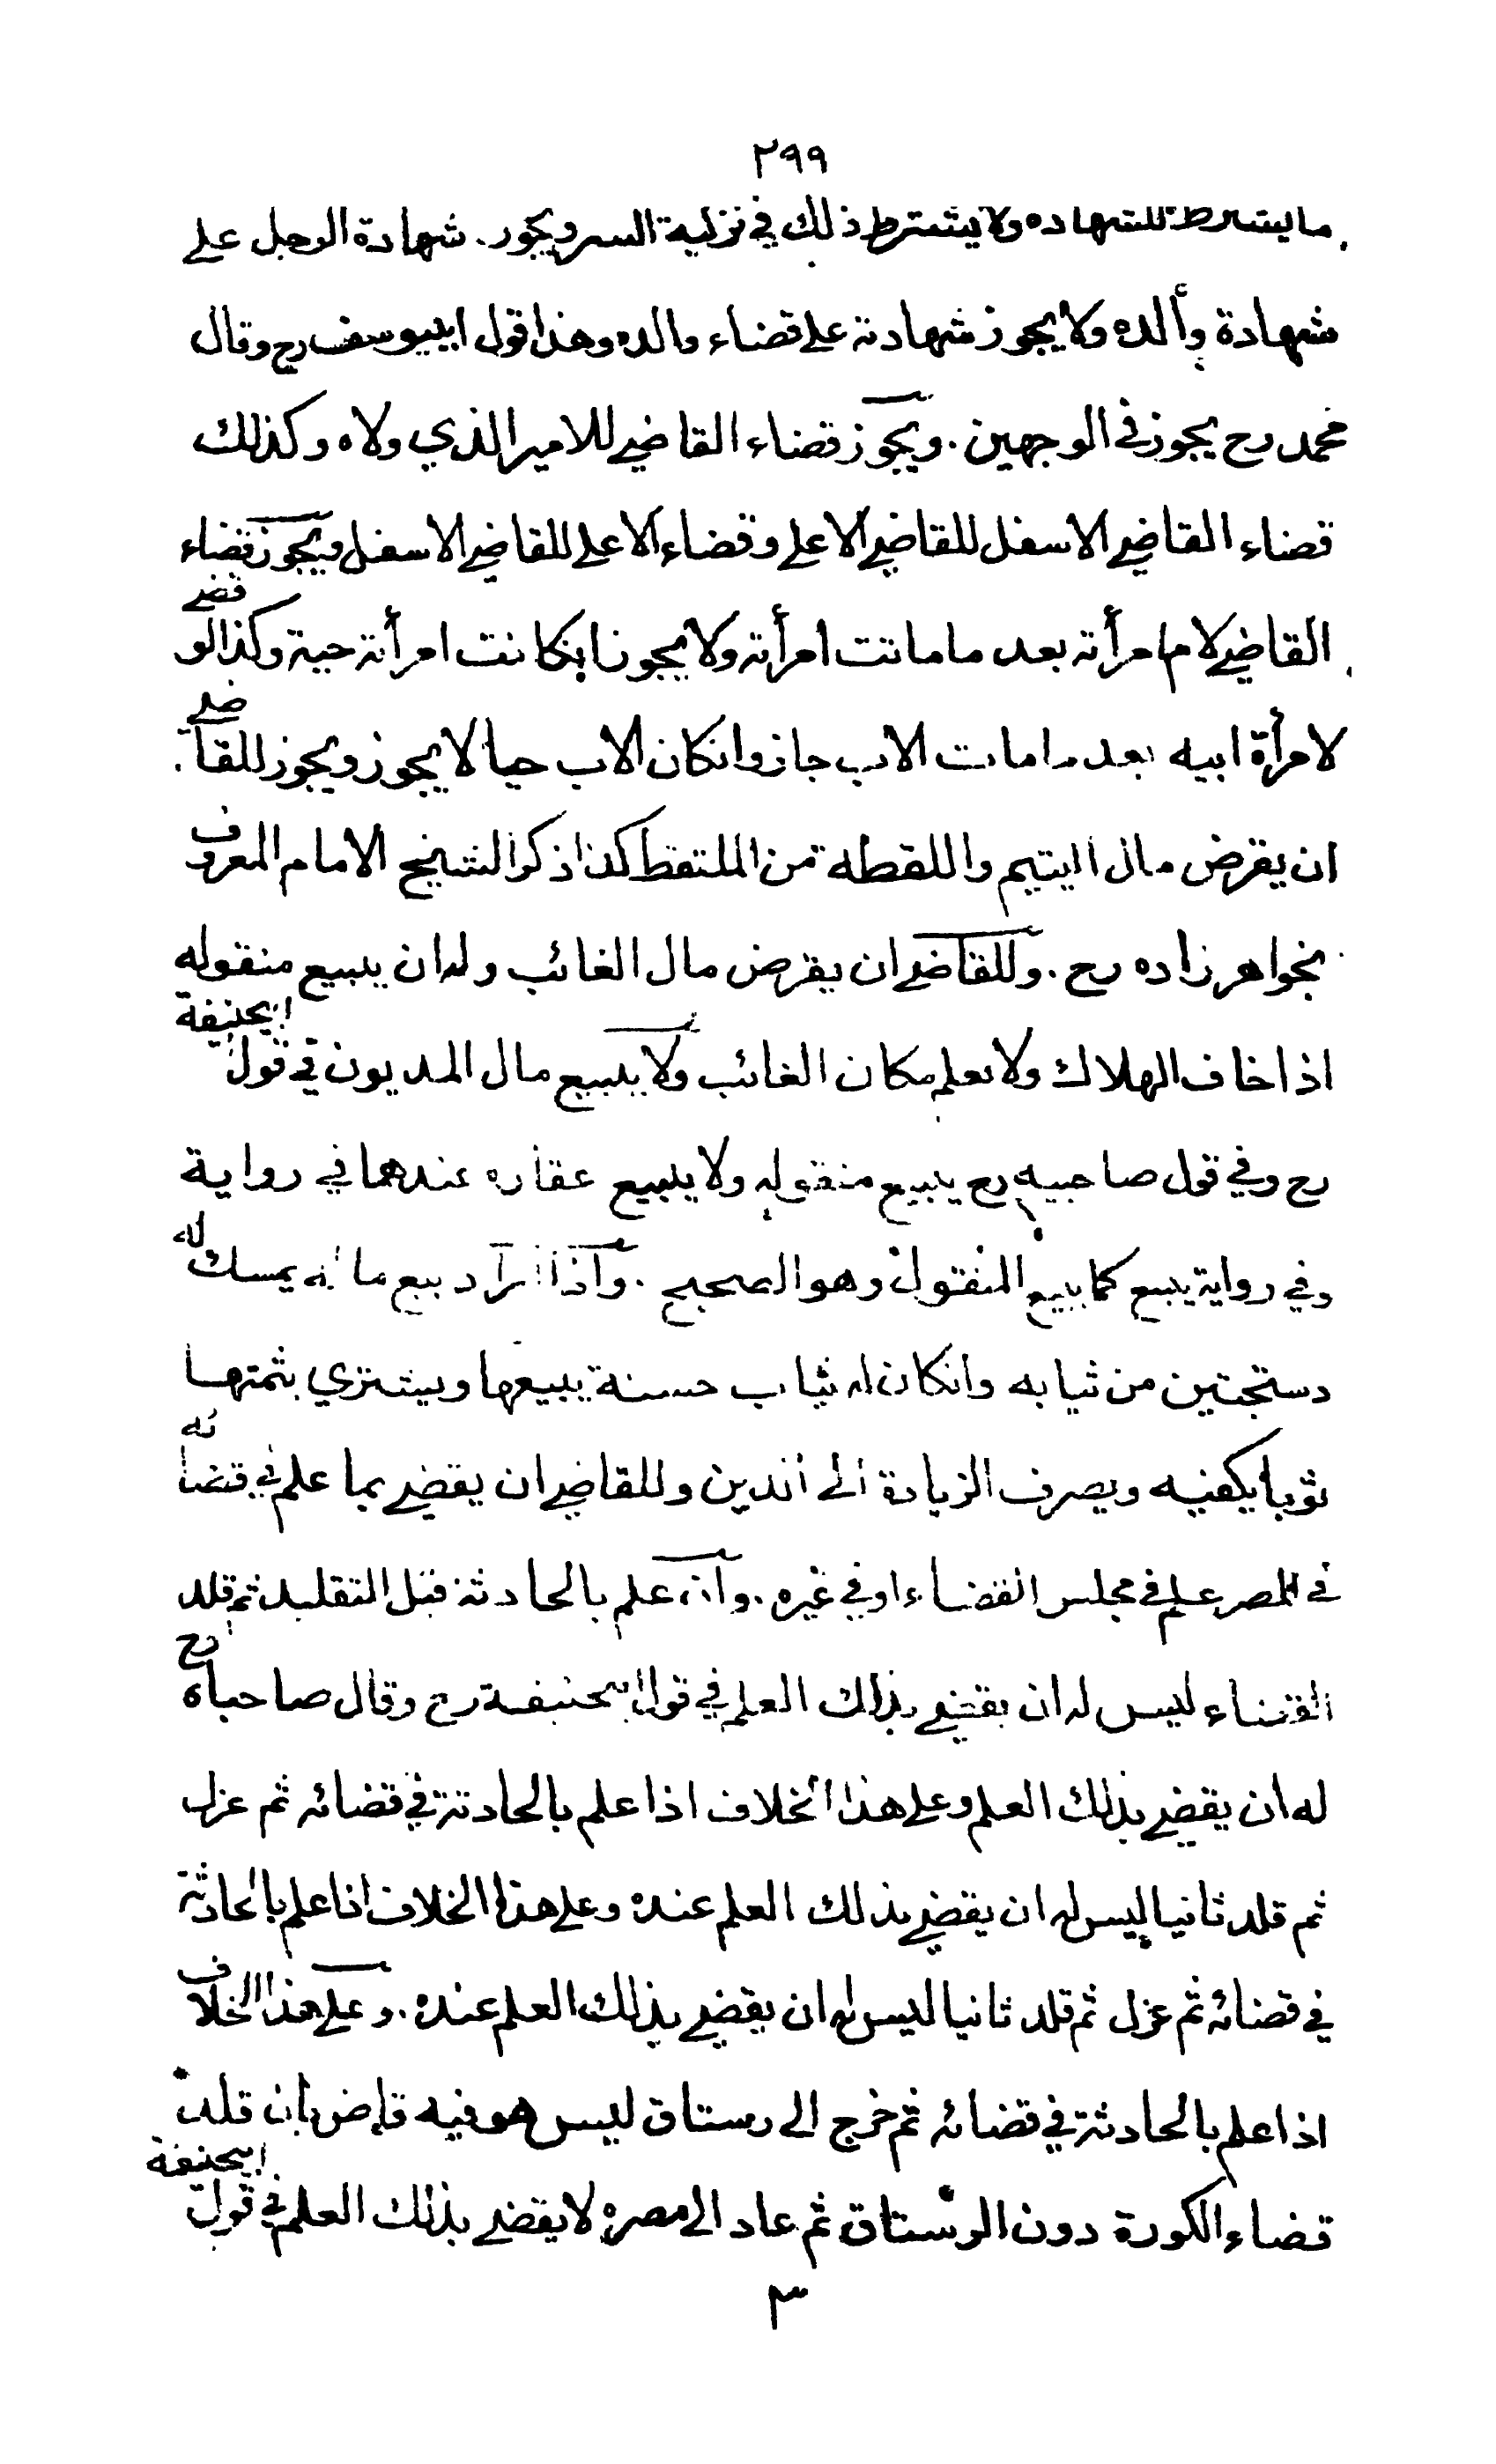 ٢٩٩
ما يشترط للشهاده ولا يشترط ذلك في تزكية السر ويجوز. شهادة الرجل على
شهادة والده ولا يجوز شهادته على قضاء والده وهذا قول ابييوسف رح وقال
محمد رح يجوز في الوجهين. ويجوز قضاء القاضي للامير الذي ولاه وكذلك
قضاء القاضي الاسفل للقاضي الاعلى وقضاء الاعلى للقاضي الاسفل ويجوز قضاء
القاضي لام امرأته بعد ما ماتت امرأته ولا يجوز انكانت امرأته حية وكذا لو قضى
لامرأة ابيه بعد ما مات الاب جاز وانكان الاب حيا لا يجوز ويجوز للقاضي
ان يقرض مال اليتيم واللقطة من الملتقط كذا ذكر الشيخ الامام المعروف
بخواهر زاده رح. وللقاضي ان يقرض مال الغائب وله ان يبيع منقوله
اذا خاف الهلاك ولا يعلم مكان الغائب ولا يبيع مال المديون في قول ابيحنيفة
رح وفي قول صاحبيه رح يبيع منقوله ولا يبيع عقاره عندهما في رواية
وفي رواية يبيع كما يبيع المنقول وهو الصحيح. واذا اراد بيع ماله يمسك له
دستجتين من ثيابه وانكان له ثياب حسنة يبيعها ويشتري بثمنها
ثوبا يكفيه ويصرف الزيادة الى الدين وللقاضي ان يقضي بما علم في قضائه
في المصر علم في مجلس القضاء او في غيره. وان علم بالحادثة قبل التقليد ثم قلد
القضاء ليس له ان يقضي بذلك العلم في قول ابيحنيفة رح وقال صاحباه رح
له ان يقضي بذلك العلم وعلى هذا الخلاف اذا علم بالحادثة في قضائه ثم عزل
ثم قلد ثانيا ليس له ان يقضي بذلك العلم عنده وعلى هذا الخلاف اذا علم بالحادثة
في قضائه ثم عزل ثم قلد ثانيا ليس له ان يقضي بذلك العلم عنده. وعلى هذا الخلاف
اذا علم بالحادثة في قضائه ثم خرج الى رستاق ليس هو فيه قاض بان قلد
قضاء الكورة دون الرستاق ثم عاد الى مصره لا يقضي بذلك العلم في قول ابيحنيفة
٣